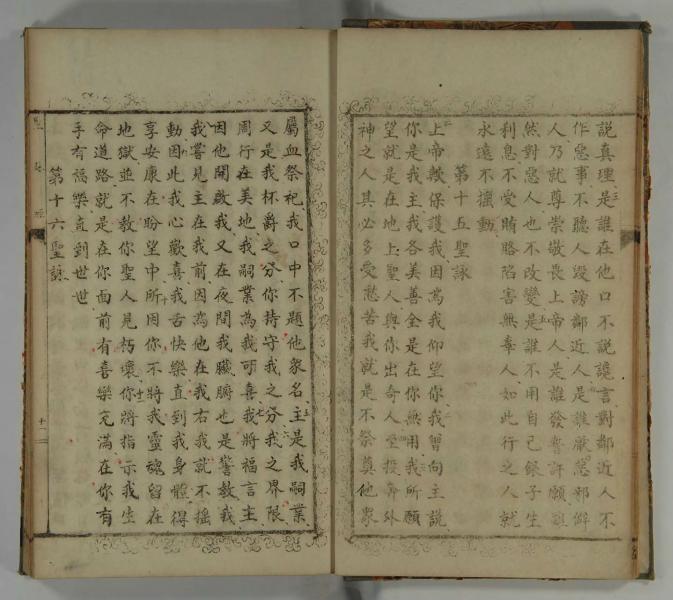 說真理是誰在他口不說讒言對鄰近人不
作惡事不聽人毀謗鄰近人是誰厭惡邪僻
人乃就尊崇敬畏上帝人是誰發誓許願雖
然對惡人也不改變是誰不用自己銀子生
利息不受賄賂陷害無辜人如此行之人就
永遠不搖動
第十五聖詠
上帝救保護我因為我仰望你我曾向主說
你是我主我各美善全是在你無用我所願
望就是在地上聖人與你出奇人至投奔外
神之人其必多受愁苦我就是不祭奠他眾
屬血祭祀我口中不題他眾名主是我嗣業
又是我杯爵之分你持守我之分我之界限
周行在美地我嗣業為我可喜我將福言主
因他開啟我又在夜間我臟腑也是警教我
我嘗見主在我前因為他在我右我就不搖
動因此我心歡喜我舌快樂直到我身體得
享安康在盼望中所因你不將我靈魂留在
地獄並不教你聖人見朽壞你將指示我生
命道路就是在你面前有喜樂充滿在你有
手有福樂直到世世
第十六聖詠
十二